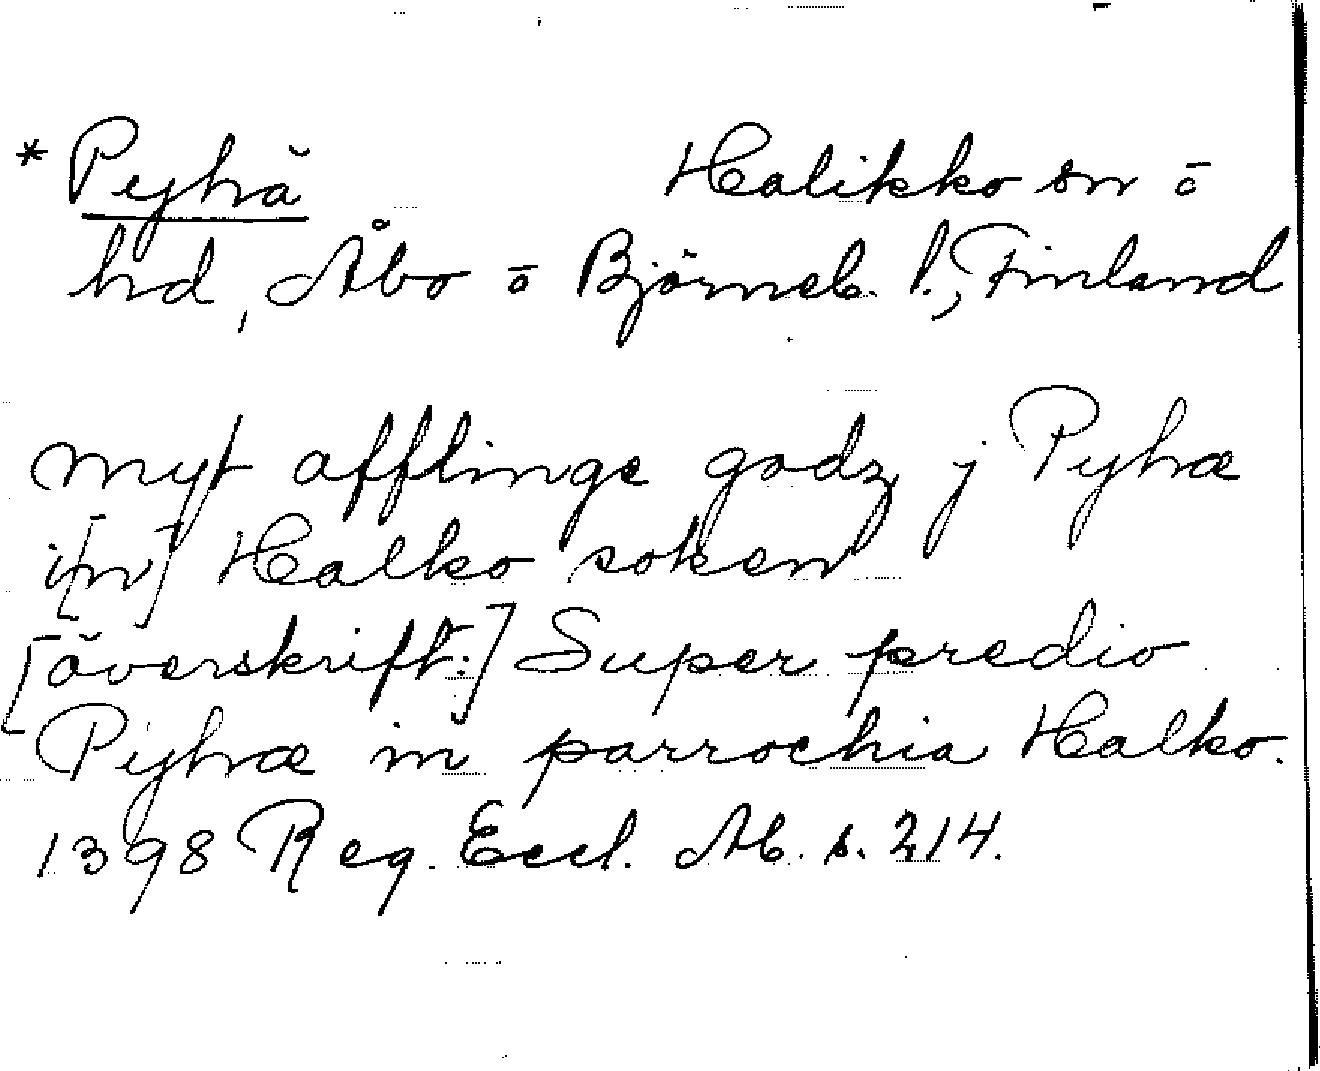 * Pyhä Halikko sn ō
hd, Åbo ō Björneb. l., Finland
myt afflinge godz j Pyhæ
i[n] Halko soken
[överskrift:] Super predio
Pyhæ in parrochia Halko.
1398 Reg. Eccl. Ab. s. 214.